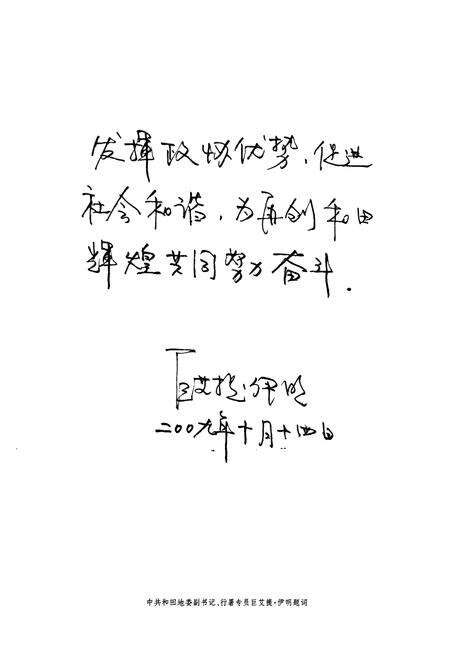 发挥政协优势，促进
社会和谐，为再创和田
辉煌共同努力奋斗．
巨艾提·伊明
二00九年十月十四日
中共和田地委副书记、行署专员巨艾提·伊明题词